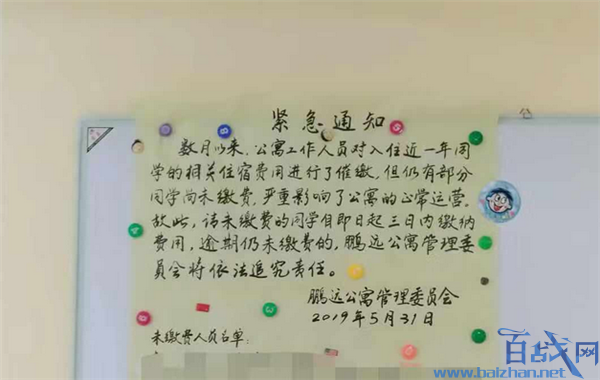 紧急通知
数月以来，公寓工作人员对入住近一年同
学的相关住宿费用进行了催缴，但仍有部分
同学尚未缴费，严重影响了公寓的正常运营。
故此，请未缴费的同学自即日起三日内缴纳
费用，逾期仍未缴费的，鹏远公寓管理委
员会将依法追究责任。
鹏远公寓管理委员会
2019年5月31日
未缴费人员名单：
百战网
www.baizhan.net